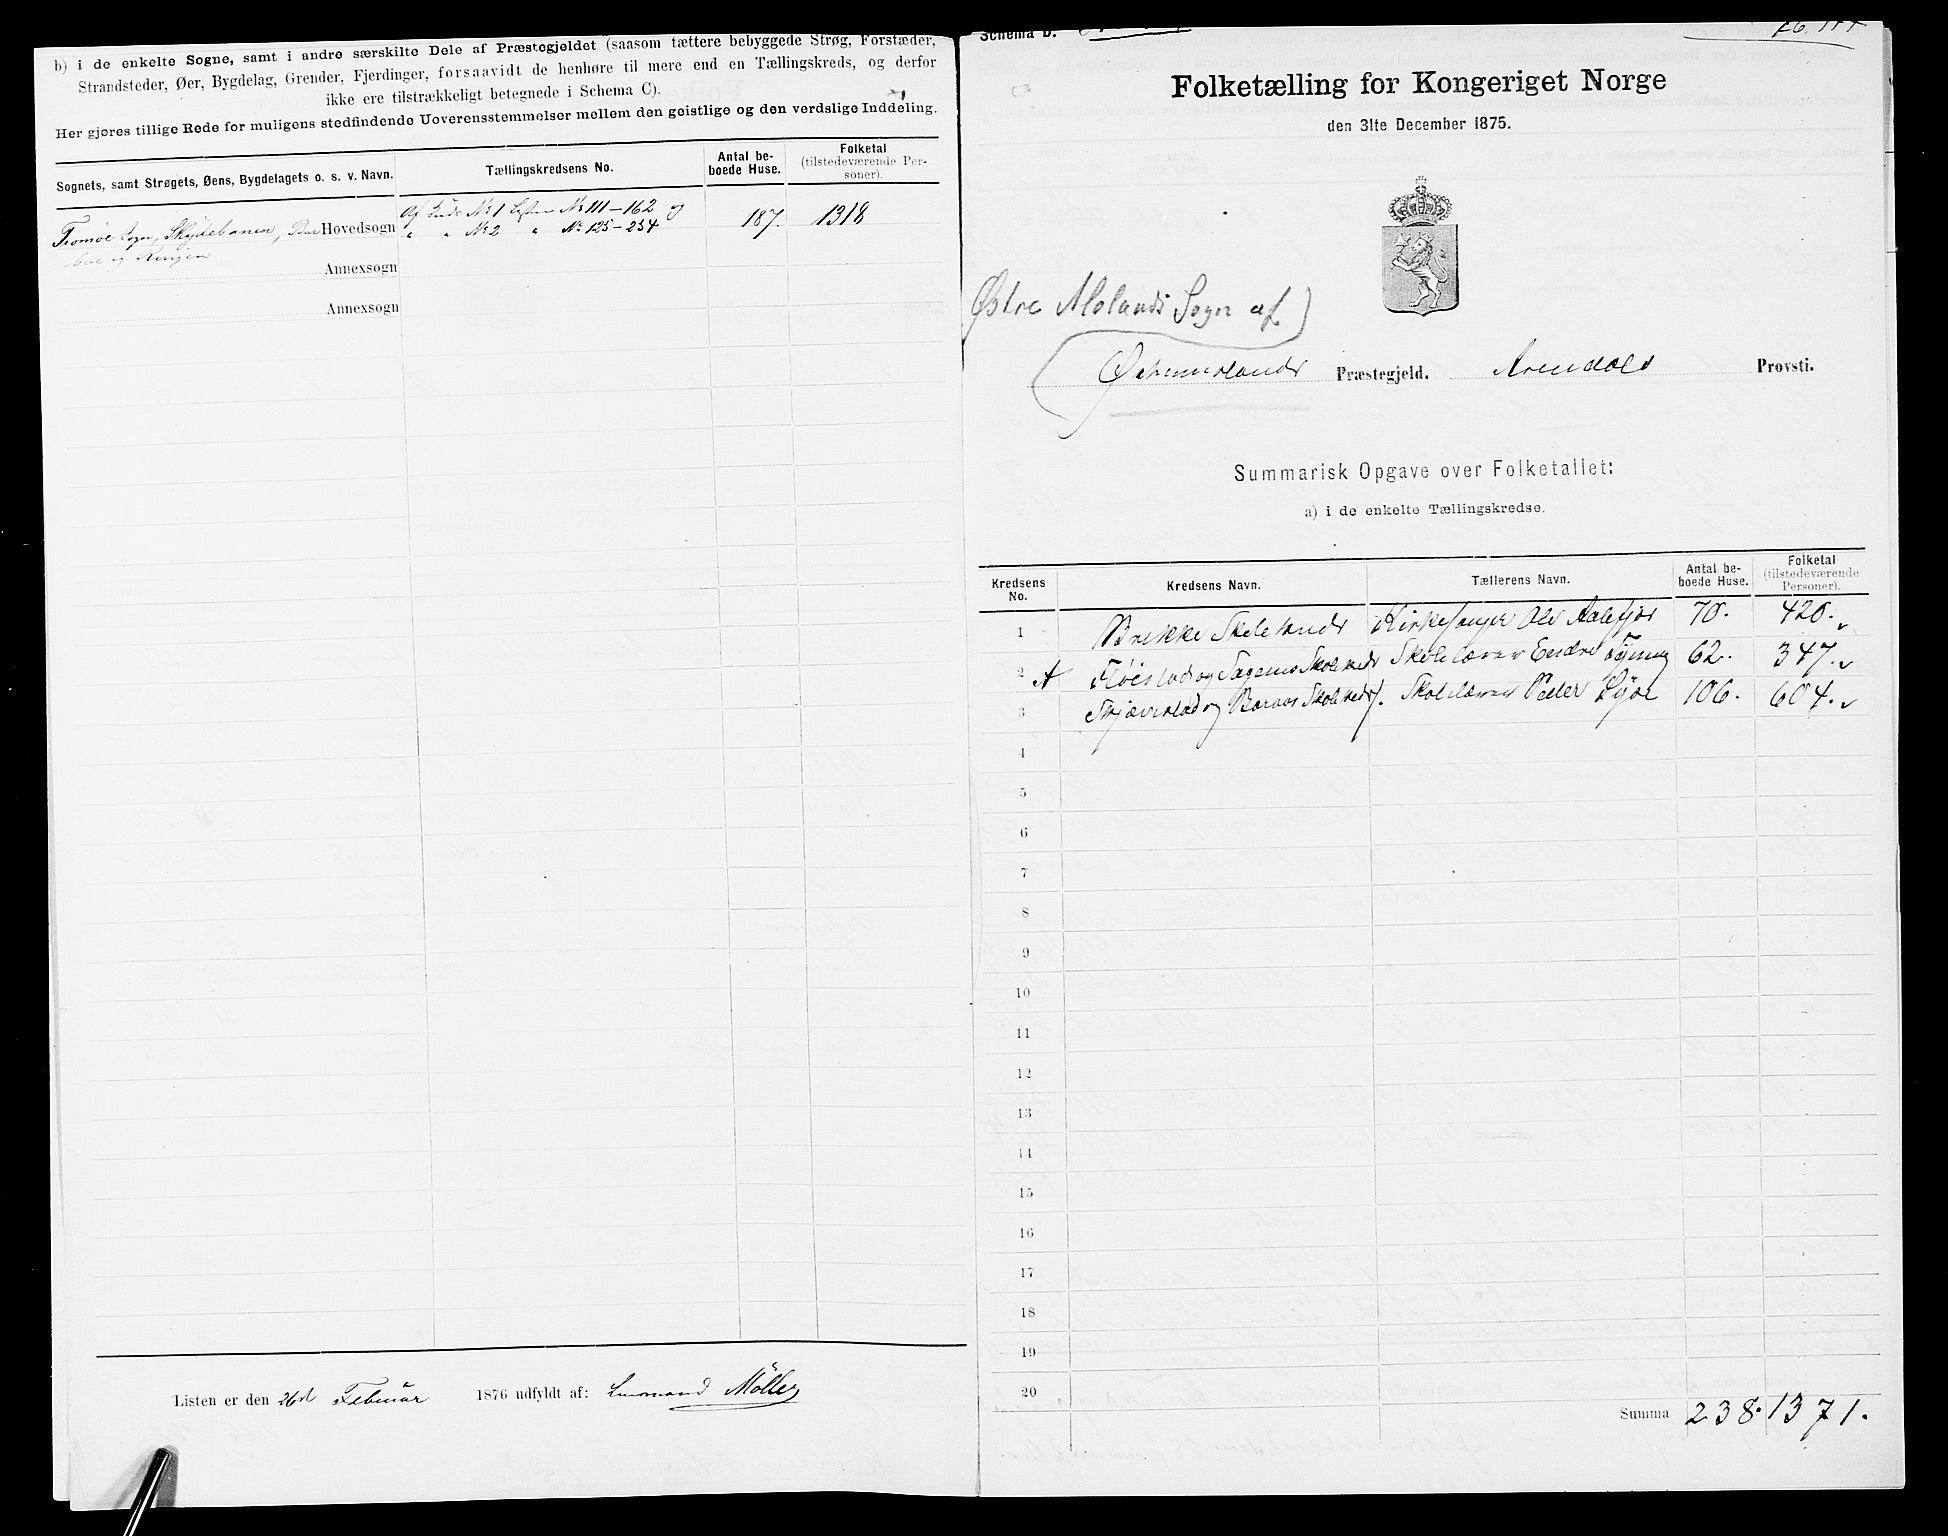 b) i de enkelte Sogne, samt i andre særskilte Dele af Præstegjeldet (saasom tættere bebyggede Strøg, Forstæder,
Strandsteder, Øer, Bygdelag, Grender, Fjerdinger, forsaavidt de henhøre til mere end en Tællingskreds, og derfor
ikke ere tilstrækkeligt betegnede i Schema C).
Her gjøres tillige Rede for muligens stedfindende Uoverensstemmelser mellem den geistlige og den verdslige Inddeling.
Sognets, samt Strøgets, Øens, Bygdelagets o. s. v. Navn.
Tællingskredsens No.
Antal be-
boede Huse.
Folketal
(tilstedeværende Per-
soner).
Tromøe Sogn, Skydebanen, Bar Hovedsogn
boe og Kongen
Af No 1 Listen No 111-162 og
" " No 2 " No 125-254
187.
1318
Annexsogn
Annexsogn
Listen er den 26d Februar 1876 udfyldt af: Lensmand Møller
Schema b.
Folketælling for Kongeriget Norge
den 31te December 1875.
Østre Molands Sogn af
Østremolands Præstegjeld. Arendals Provsti.
Summarisk Opgave over Folketallet:
a) i de enkelte Tællingskredse.
Kredsens
No.
Kredsens Navn.
Tællerens Navn.
Antal be-
boede Huse.
Folketal
(tilstedeværende
Personer).
1 Brekke Skolekreds Kirkesanger Ole 70. 420.
2 Fløistad og Sagenes Skolekreds Skolelærer Endre 62. 347.
3 Skjævestad og Baraas Skolekreds. Skolelærer Peder 106. 604.
4
5
6
7
8
9
10
11
12
13
14
15
16
17
18
19
20
Summa 238. 1371.